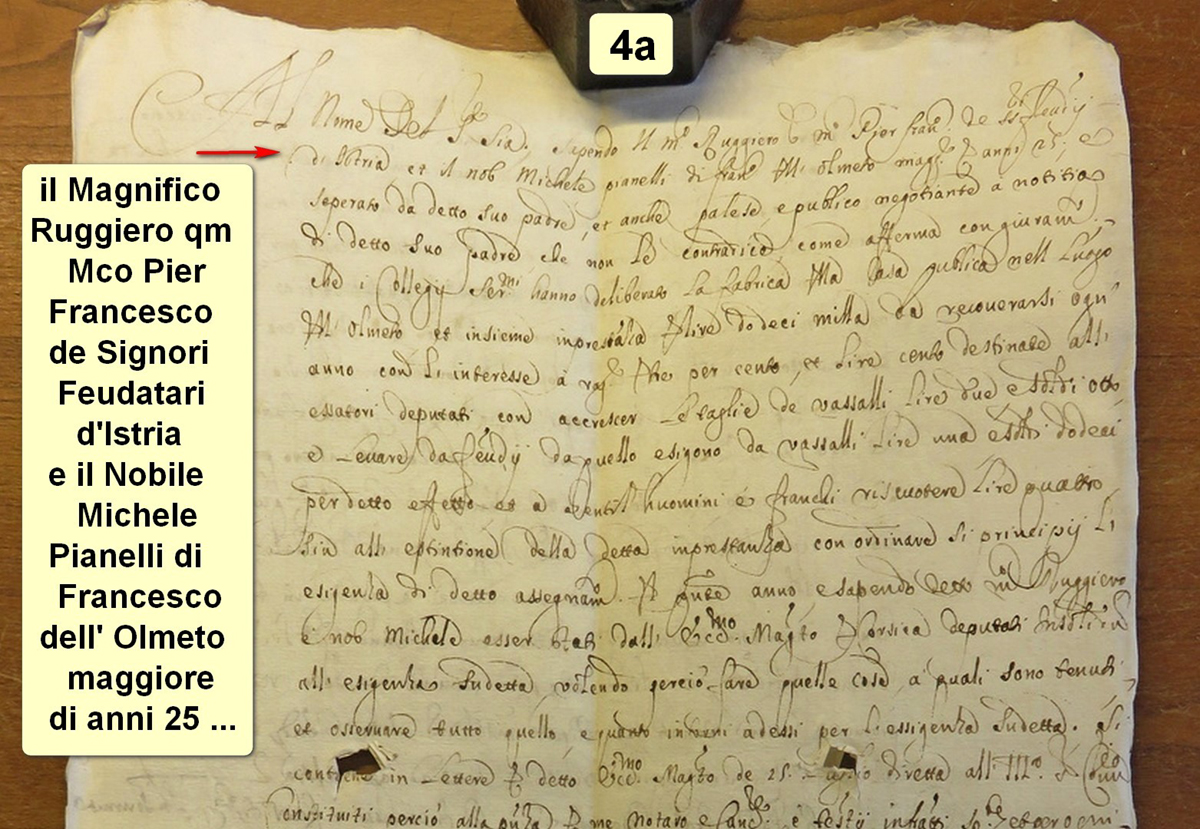 4a
il Magnifico
Ruggiero qm
Mco Pier
Francesco
de Signori
Feudatari
d'Istria
e il Nobile
Michele
Pianelli di
Francesco
dell' Olmeto
maggiore
di anni 25 ...
Al Nome Del Sr. Sia. Sapendo Il mco Ruggiero q mco Pier franco de ss.ri feudij
d'Istria et il nob Michele pianelli di franco dell' olmeto magre d anni 25, e
seperato da detto suo padre, et anche palese e publico negotiante a notitia
di detto suo padre, che non le contradice, come afferma con giuramto.
che i Collegij Sermi hanno deliberato la fabrica della Casa publica nell Luogo
dell' olmeto et insieme imprestata lire dodeci milla da recouerarsi ogn'
anno con li interesse à ragne tre per cento, et Lire cento destinate alli
essatori deputati con accrescer le taglie de vassalli Lire due e soldi otto
e Levare da feudij da quello esigono da vassalli Lire una e soldi dodeci
per detto effetto et a gentil huomini e franchi riscuotere Lire quattro
sin all estintione della detta imprestanza con ordinare si principij li
esigenza di detto assegnamto. Il pnte anno, e sapendo detto mco Ruggiero
e nob Michele esser stati dall' Eccmo. Magto di Corsica deputati
all esigenza sudetta volendo perciò fare quelle cose, a quali sono tenuti
et osseruare tutto quello, e quanto incombi adessi per l'essigenza sudetta.
in Lettere di detto Eccmo Magto de 25. Luglio diretta all' Ill.o
Constituiti perciò alla pnza di me notaro e Cancre. e testij infrascti